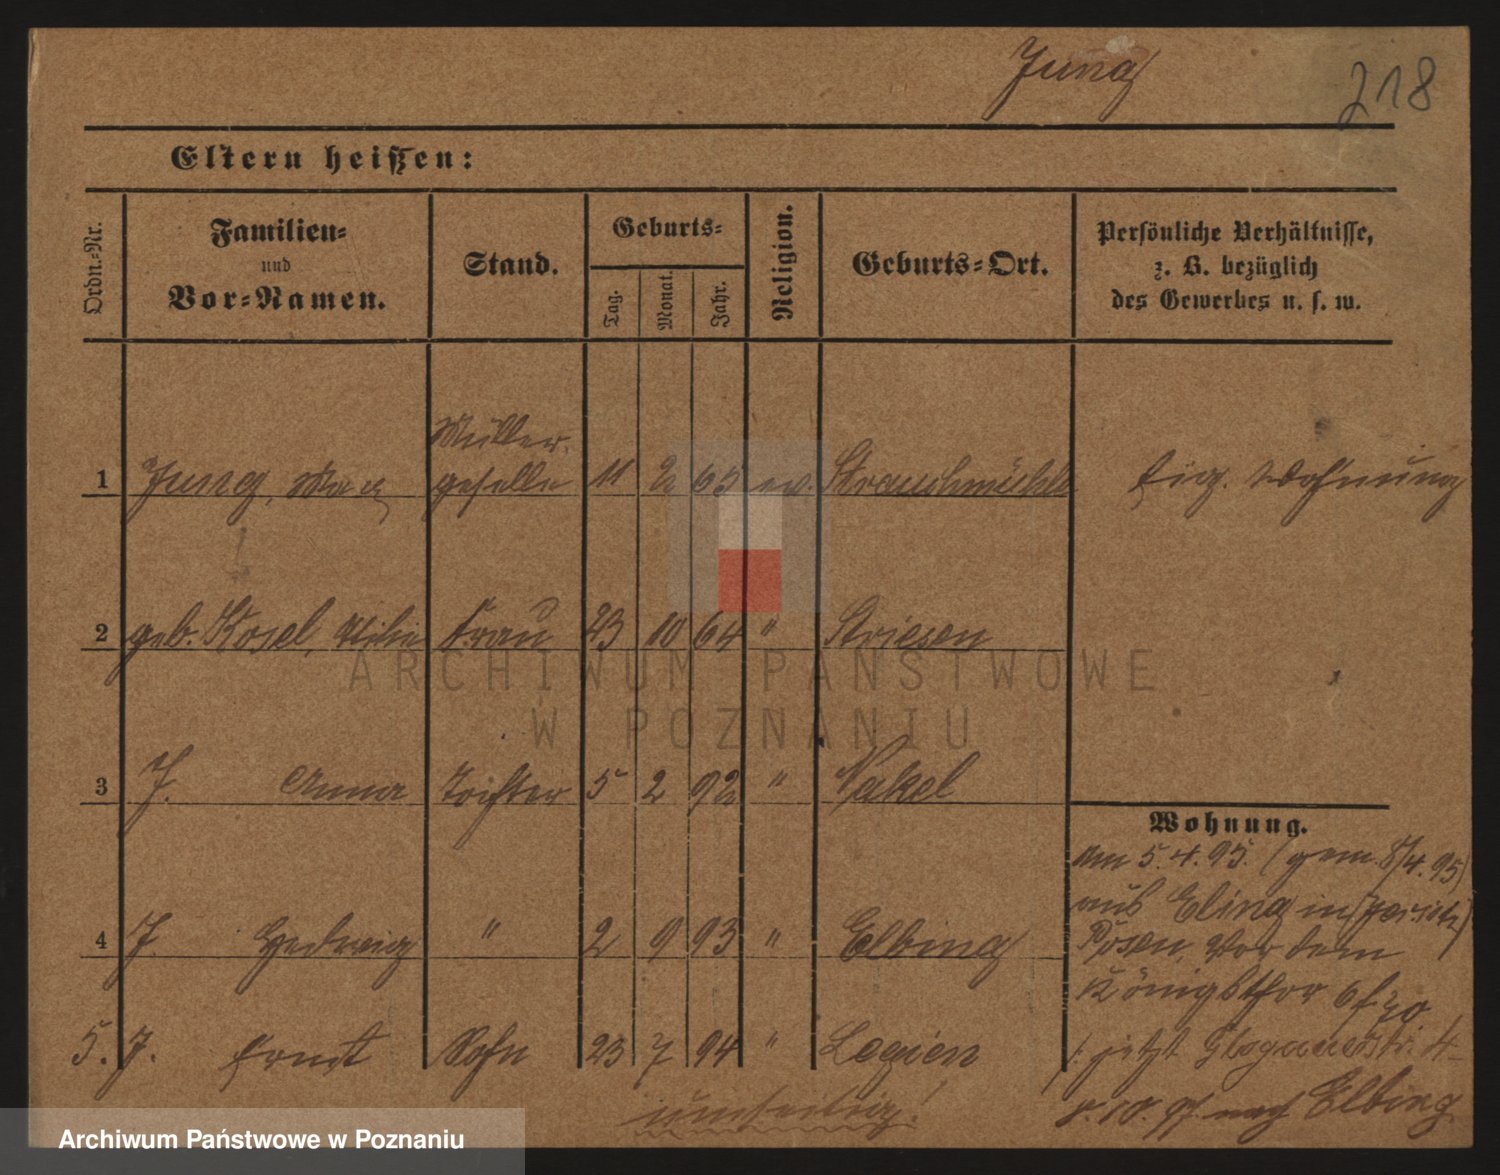 Jung
218
Eltern heißen:
Ordn.-Nr.
Familien-
und
Vor-Namen.
Stand.
Geburts-
Tag.
Monat.
Jahr.
Religion.
Geburts-Ort.
Persönliche Verhältnisse,
z. B. bezüglich
des Gewerbes u. s. w.
Müller-
1 Jung, Max geselle 11 2 63 ev. Strauchmühle Eig. Wohnung
2 geb. Kosel, Frau 23 10 64 " Striesen
ARCHIWUM PAŃSTWOWE
W POZNANIU
3 J. Anna Tochter 5 2 92 " Nakel
Wohnung.
am 5.4.95. (gem. 8/4.95)
aus Elbing in
4 J. Hedwig " 2 9 93 " Elbing
Posen, Vor dem
Königsthor
5. J. Ernst Sohn 23 7 94 " Legien
jetzt Glogauerstr. 4
umseitig!
8.10.97 nach Elbing
Archiwum Państwowe w Poznaniu